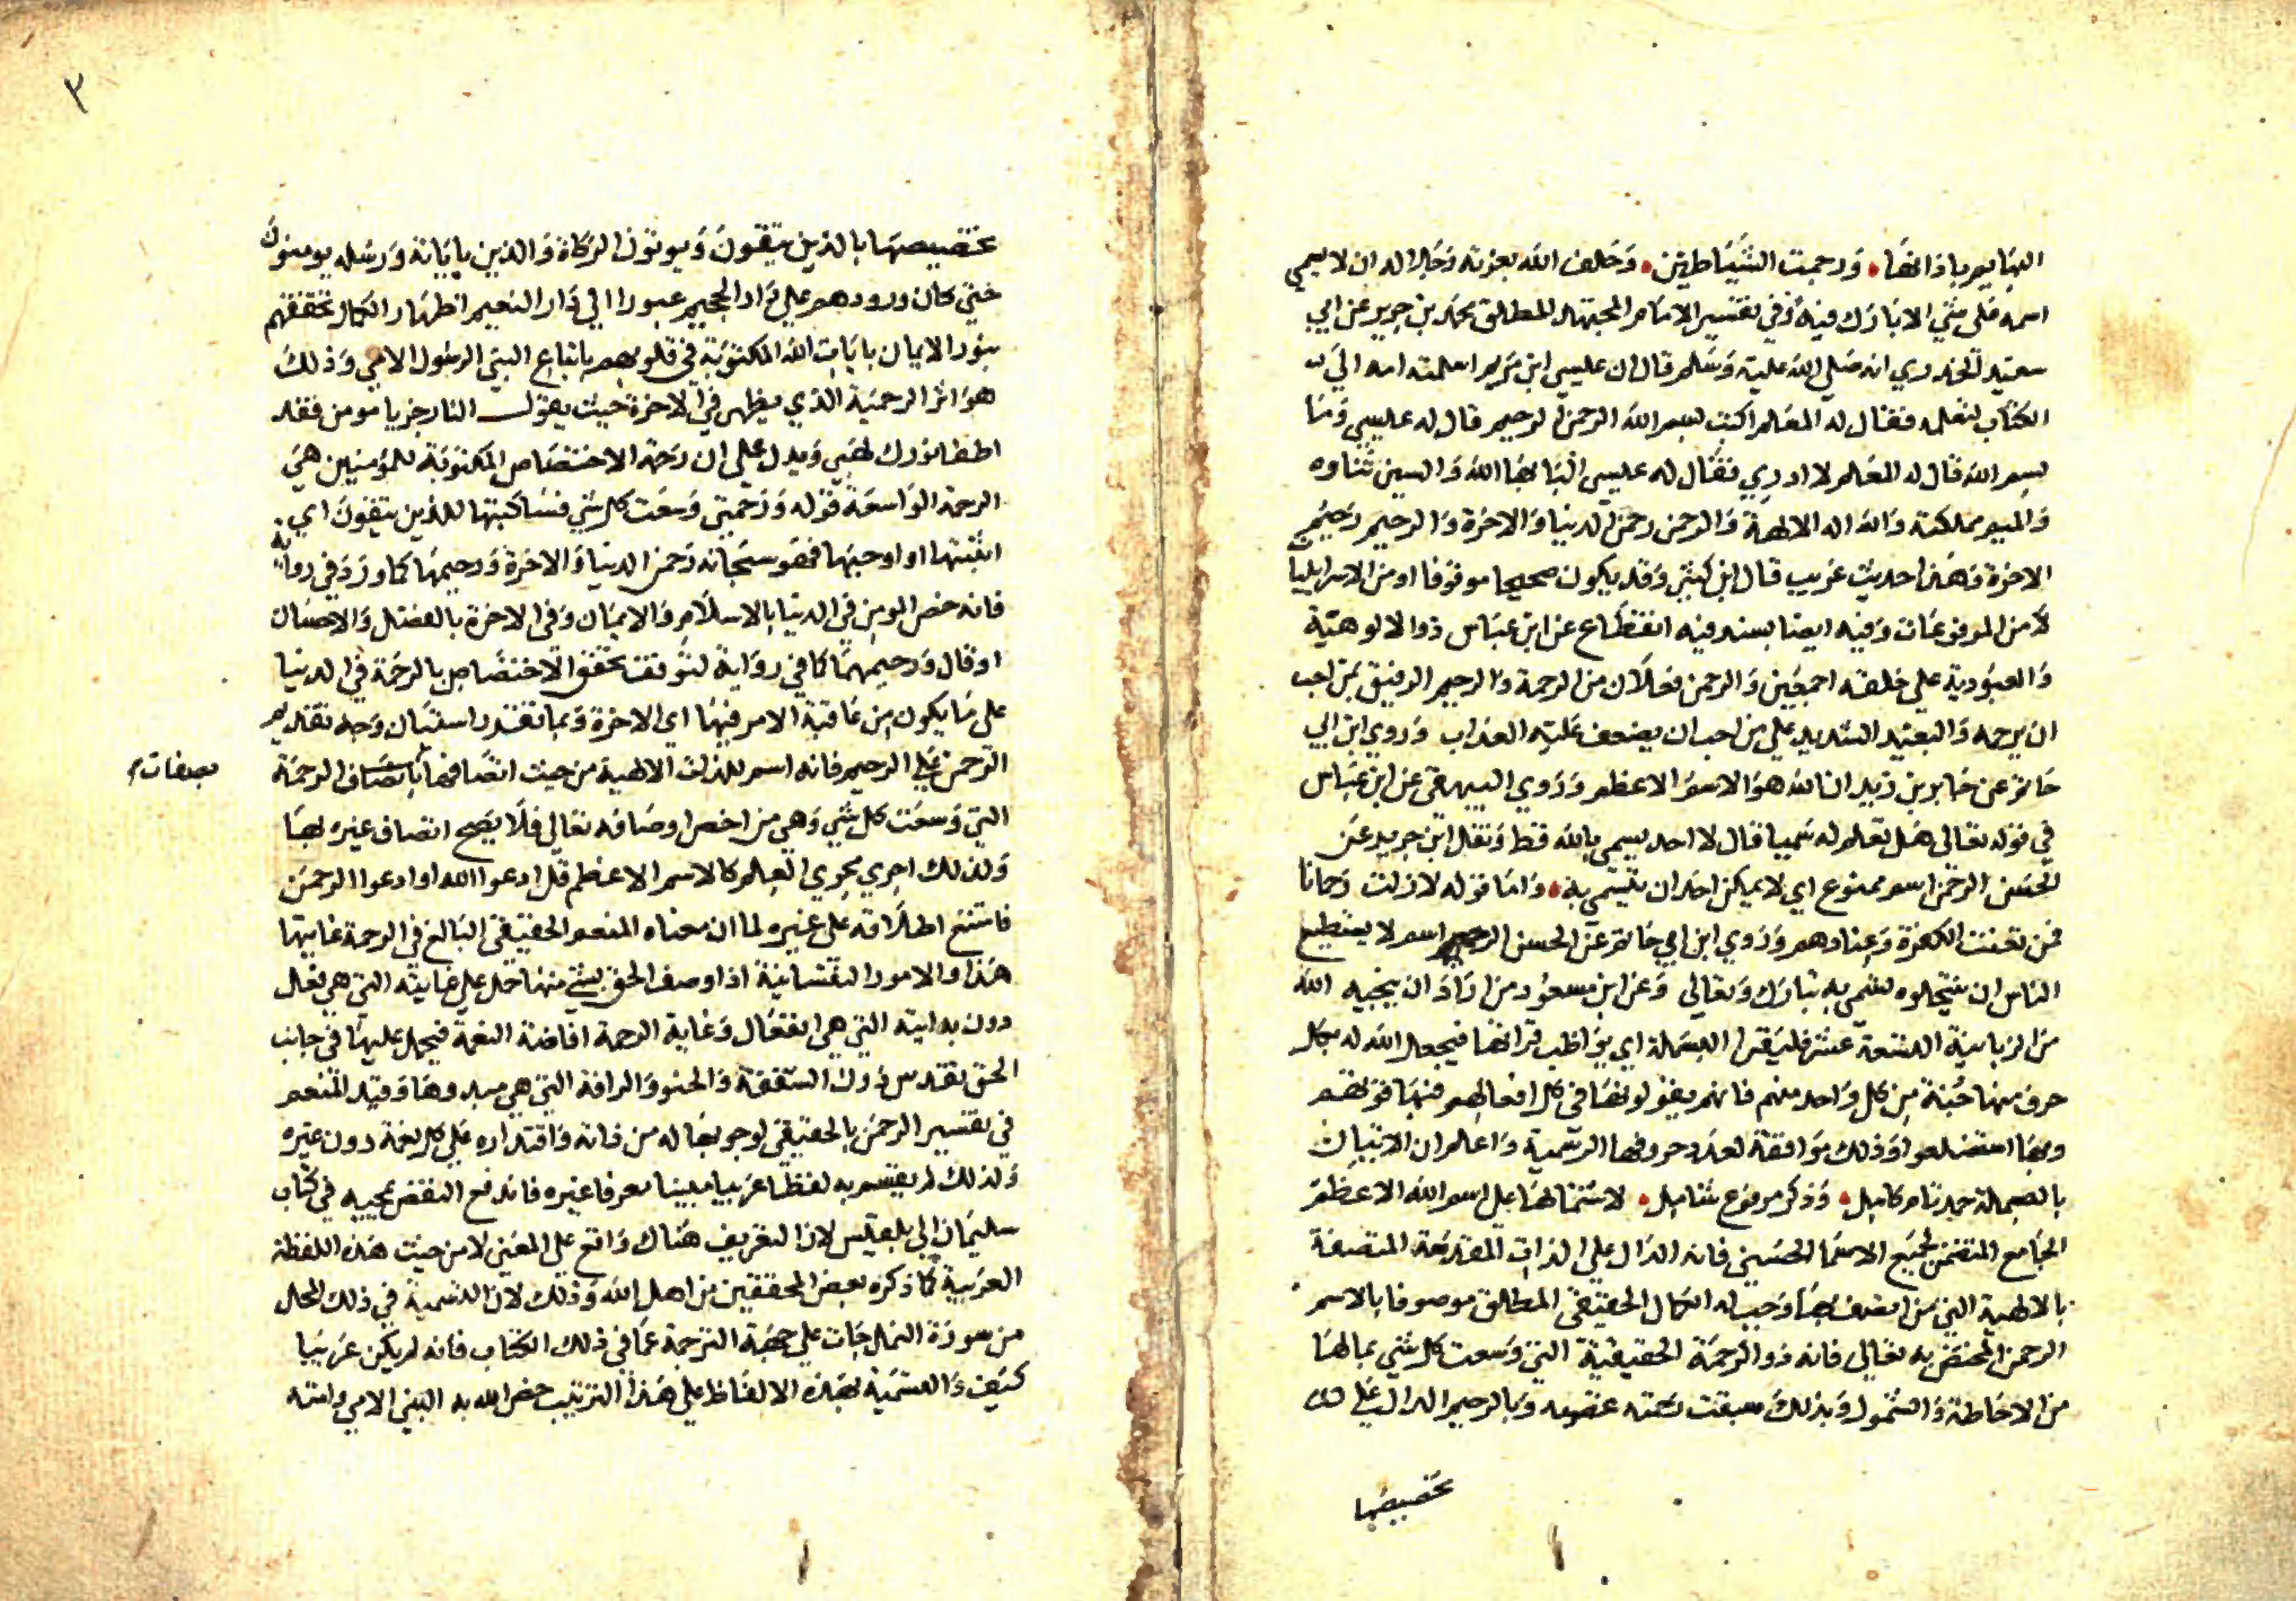 البهايم باذانها، ورجمت الشياطين، وحلف الله بعزته وجلاله ان لا يسمي
اسمه على شي الا بارك فيه وفي تفسير الامام المجتهد المطلق محمد بن جرير عن ابي
سعيد الخدري انه صلى الله عليه وسلم قال ان عيسى ابن مريم اسلمته امه الي
الكتاب لتعلمه فقال له المعلم اكتب بسم الله الرحمن الرحيم قال له عيسى وما
بسم الله قال له المعلم لا ادري فقال له عيسى البا بها الله والسين سناوه
والميم مملكته والله اله الالهة والرحمن رحمن الدنيا والاخرة والرحيم رحيم
الاخرة وهذا حديث غريب قال ابن كثير وقد يكون صحيحا موقوفا او من الاسرايليا
لا من المرفوعات وفيه ايضا بسند فيه انقطاع عن ابن عباس ذوا الالوهية
والعبودية على خلقه اجمعين والرحمن فعلان من الرحمة والرحيم الرفيق بمن احب
ان يرحمه والبعيد الشديد على من احب ان يضعف عليه العذاب وروي ابن ابي
حاتم عن جابر بن زيد ان الله هو الاسم الاعظم وروي البيهقي عن ابن عباس
في قوله تعالى هل تعلم له سميا قال لا احد يسمى بالله قط ونقل ابن جرير عن
الحسن الرحمن اسم ممنوع اي لا يمكن احد ان يتسمى به، واما قوله لا زلت رحمانا
فمن تعنت الكفرة وعنادهم وروي ابن ابي حاتم عن الحسن الرحيم اسم لا يستطيع
الناس ان ينتحلوه تسمى به تبارك وتعالى وعن ابن مسعود من اراد ان ينجيه الله
من الزبانية التسعة عشر فليقرا البسملة اي يواظب قرانها فيجعل الله له بكل
حرف منها جنة من كل واحد منهم فانهم يقولونها في كل افعالهم فبها قوتهم
وبها استضلعوا وذلك موافقة لعدد حروفها الرسمية واعلم ان الاتيان
بالبسملة حمد تام كامل، وذكر مرفوع شامل، لاشتمالها على اسم الله الاعظم
الجامع المتضمن لجميع الاسما الحسنى فانه الدال على الذات المقدسة المتصفة
بالالهية التي من اتصف بها وجب له الكمال الحقيقي المطلق موصوفا بالاسم
الرحمن المختص به تعالى فانه ذو الرحمة الحقيقية التي وسعت كل شي بما لها
من الاحاطة والشمول وبذلك سبقت رحمته غضبه وبالرحيم الدال على
تخصيصها
٣
تخصيصها بالذين يتقون ويوتون الزكاة والذين باياته ورسله يومنون
حتي كان ورودهم علي نار الجحيم عبورا الي دار النعيم اظهار الكمال تحققهم
بنور الايمان بايات الله المكتوبة في قلوبهم باتباع النبي الرسول الامي وذلك
هو اثر الرحمية الذي يظهر في الاخرة حيث يقول النار جز يا مومن فقد
اطفا نورك لهبي ويدل علي ان رحمة الاختصاص المكتوبة للمومنين هي
الرحمة الواسعة قوله ورحمتي وسعت كل شي فساكتبها للذين يتقون اي
اثبتها او اوجبها فهو سبحانه رحمن الدنيا والاخرة ورحيمها كما ورد في رواية
فانه خص المومن في الدنيا بالاسلام والايمان وفي الاخرة بالفضل والاحسان
او قال ورحيمهما كما في رواية لتوقف تحقق الاختصاص بالرحمة في الدنيا
على ما يكون من عاقبة الامر فيها اي الاخرة وبما تقدر استبان وجه تقديم
الرحمن على الرحيم فانه اسم للذات الالهية من حيث اتصافها باتصاف الرحمة
بصفات
التي وسعت كل شي وهي من اخص اوصافه تعالى فلا يصح اتصاف غيره بها
ولذلك اجري مجري العلم كالاسم الاعظم قل ادعوا الله او ادعوا الرحمن
فامتنع اطلاقه على غيره لما ان معناه المنعم الحقيقي البالغ في الرحمة غايتها
هذا والامور النفسانية اذا وصف الحق بشي منها حمل على غايته التي هي فعل
دون بدايته التي هي انفعال وغاية الرحمة افاضة النعمة فيحمل عليها في جانب
الحق تقدس دون الشفقة والحنو والرافة التي هي مبدوها وقيد المنعم
في تفسير الرحمن بالحقيقي لوجوبها له من ذاته واقتداره على كل نعمة دون غيره
ولذلك لم يتسم به لفظا عربيا مبينا معرفا غيره فاندفع النقض بمجيه في كتاب
سليمان الي بلقيس لان التعريف هناك واقع علي المعنى لا من حيث هذه اللفظة
العربية كما ذكره بعض المحققين من اهل الله وذلك لان التسمية في ذلك المحل
من سورة النمل جات على جهة الترجمة عما في ذلك الكتاب فانه لم يكن عربيا
كيف والتسمية بهذه الالفاظ على هذا الترتيب خص الله به النبي الامي وامته